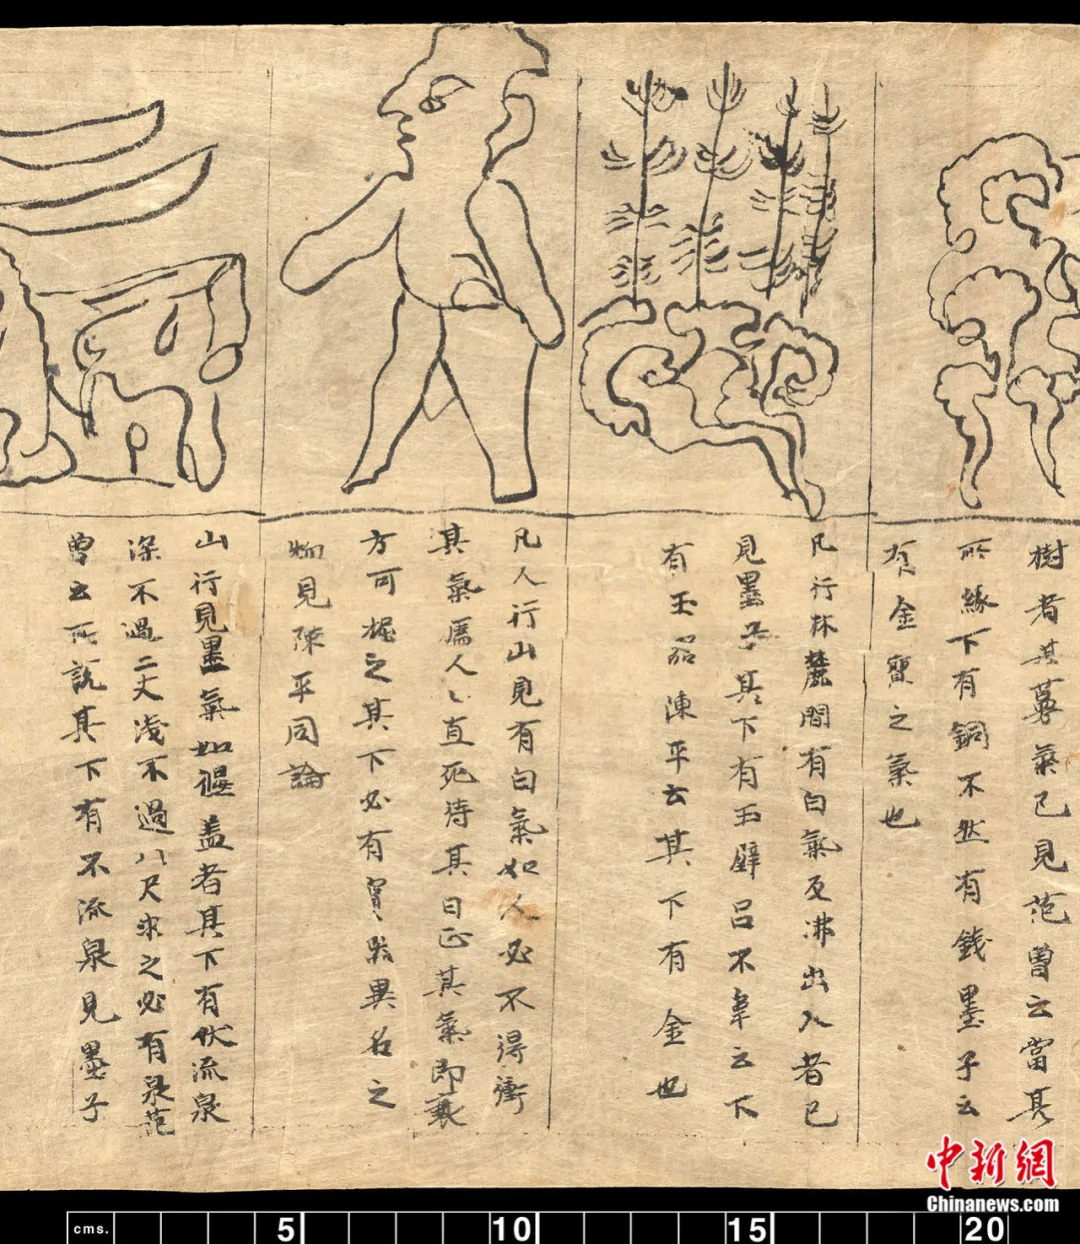 樹者其募氣已見范曾云當其
所緣下有銅不然有錢墨子云
有金寶之氣也
凡行林麓間有白氣反沸出入者已
見墨子其下有玉璧呂不韋云下
有玉器陳平云其下有金也
凡人行山見有白氣如人必不得衝
其氣傷人〻直死待其日正其氣即衰
方可掘之其下必有寶異名之
物見陳平同論
山行見黑氣如偃盖者其下有伏流泉
深不過二丈淺不過八尺求之必有泉范
曾云所說其下有不流泉見墨子
中新網
Chinanews.com
cms. 5 10 15 20